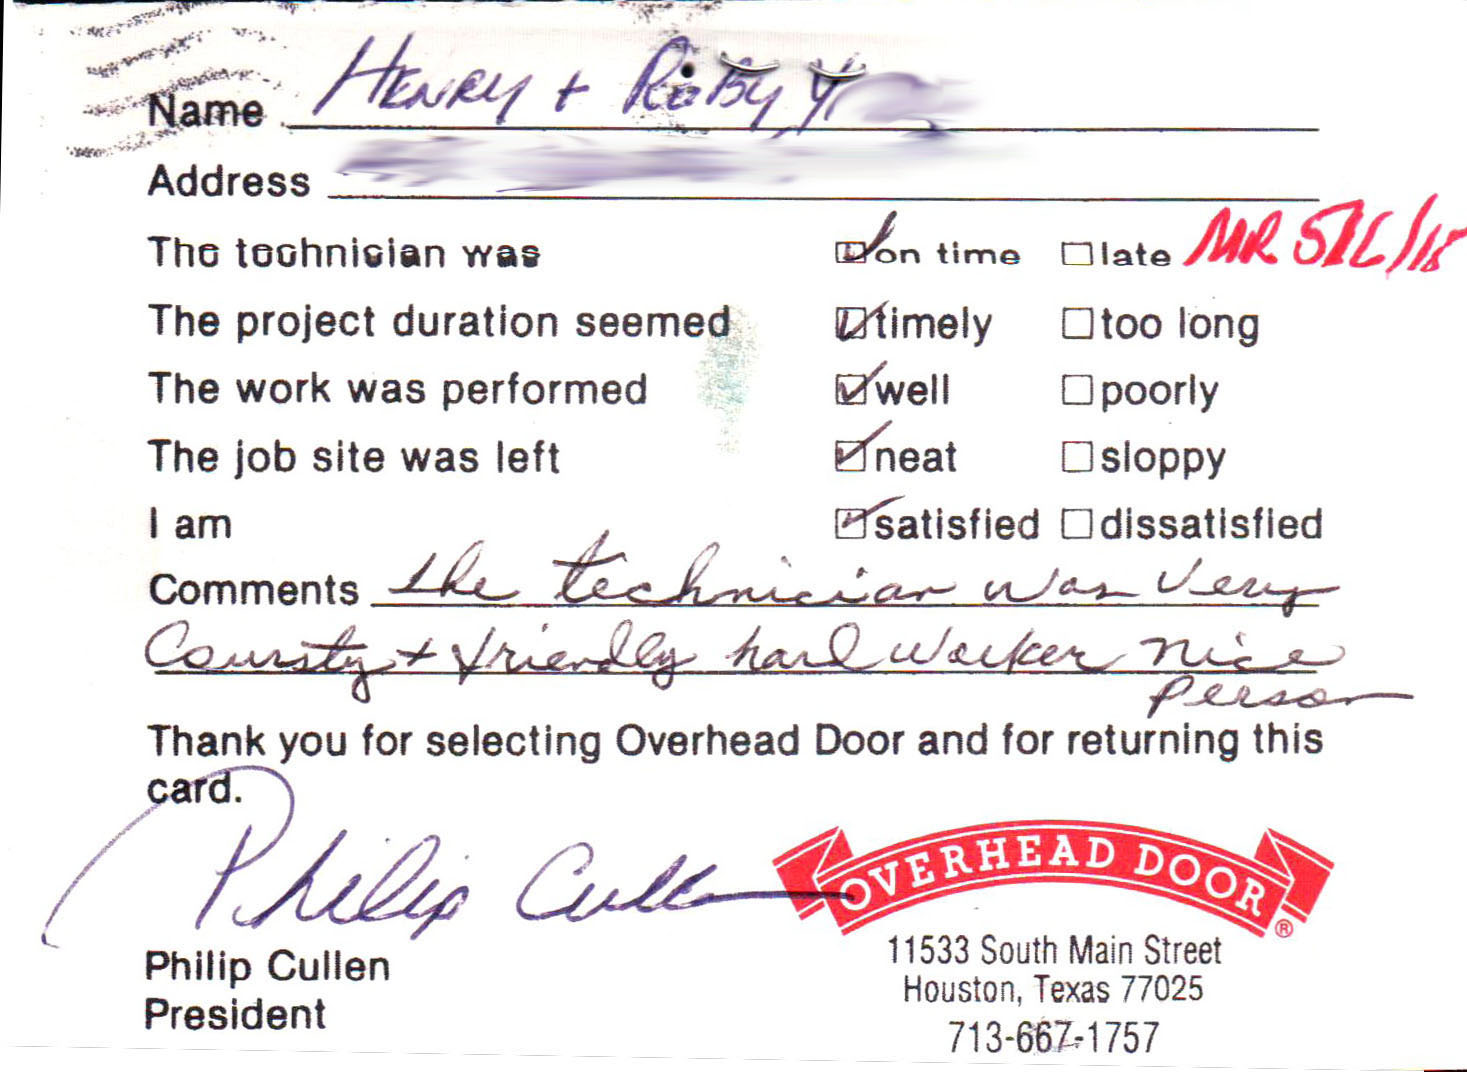 Name HENRY + RoBy Y
Address
The technician was on time late MR 5/6/15
The project duration seemed timely too long
The work was performed well poorly
The job site was left neat sloppy
I am satisfied dissatisfied
Comments the technician was very
Coursty + friendly hard worker nice
person
Thank you for selecting Overhead Door and for returning this
card.
Philip Cullen
OVERHEAD DOOR®
Philip Cullen
President
11533 South Main Street
Houston, Texas 77025
713-667-1757